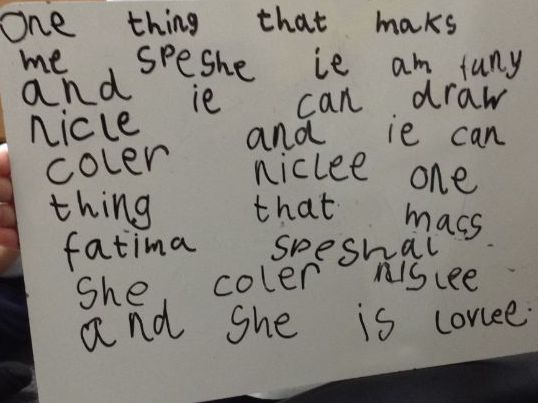 One thing that maks
me speshe ie am funy
and ie can draw
nicle and ie can
coler niclee one
thing that mass
fatima speshal
She coler nislee
and She is lovlee.